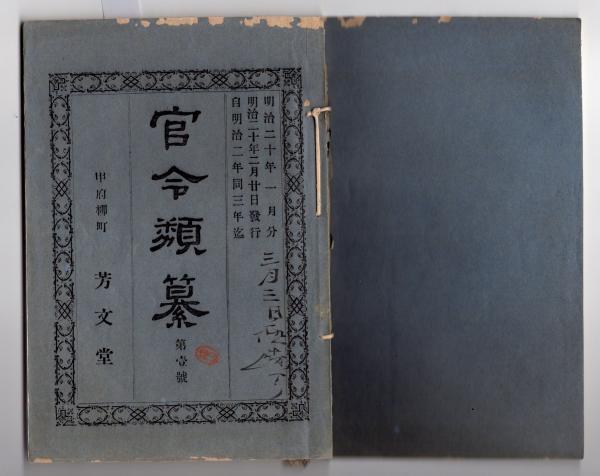 明治二十年一月分
明治二十年二月廿日發行
自明治二年同三年迄
三月三日
官令類纂
第壹號
甲府柳町
芳文堂